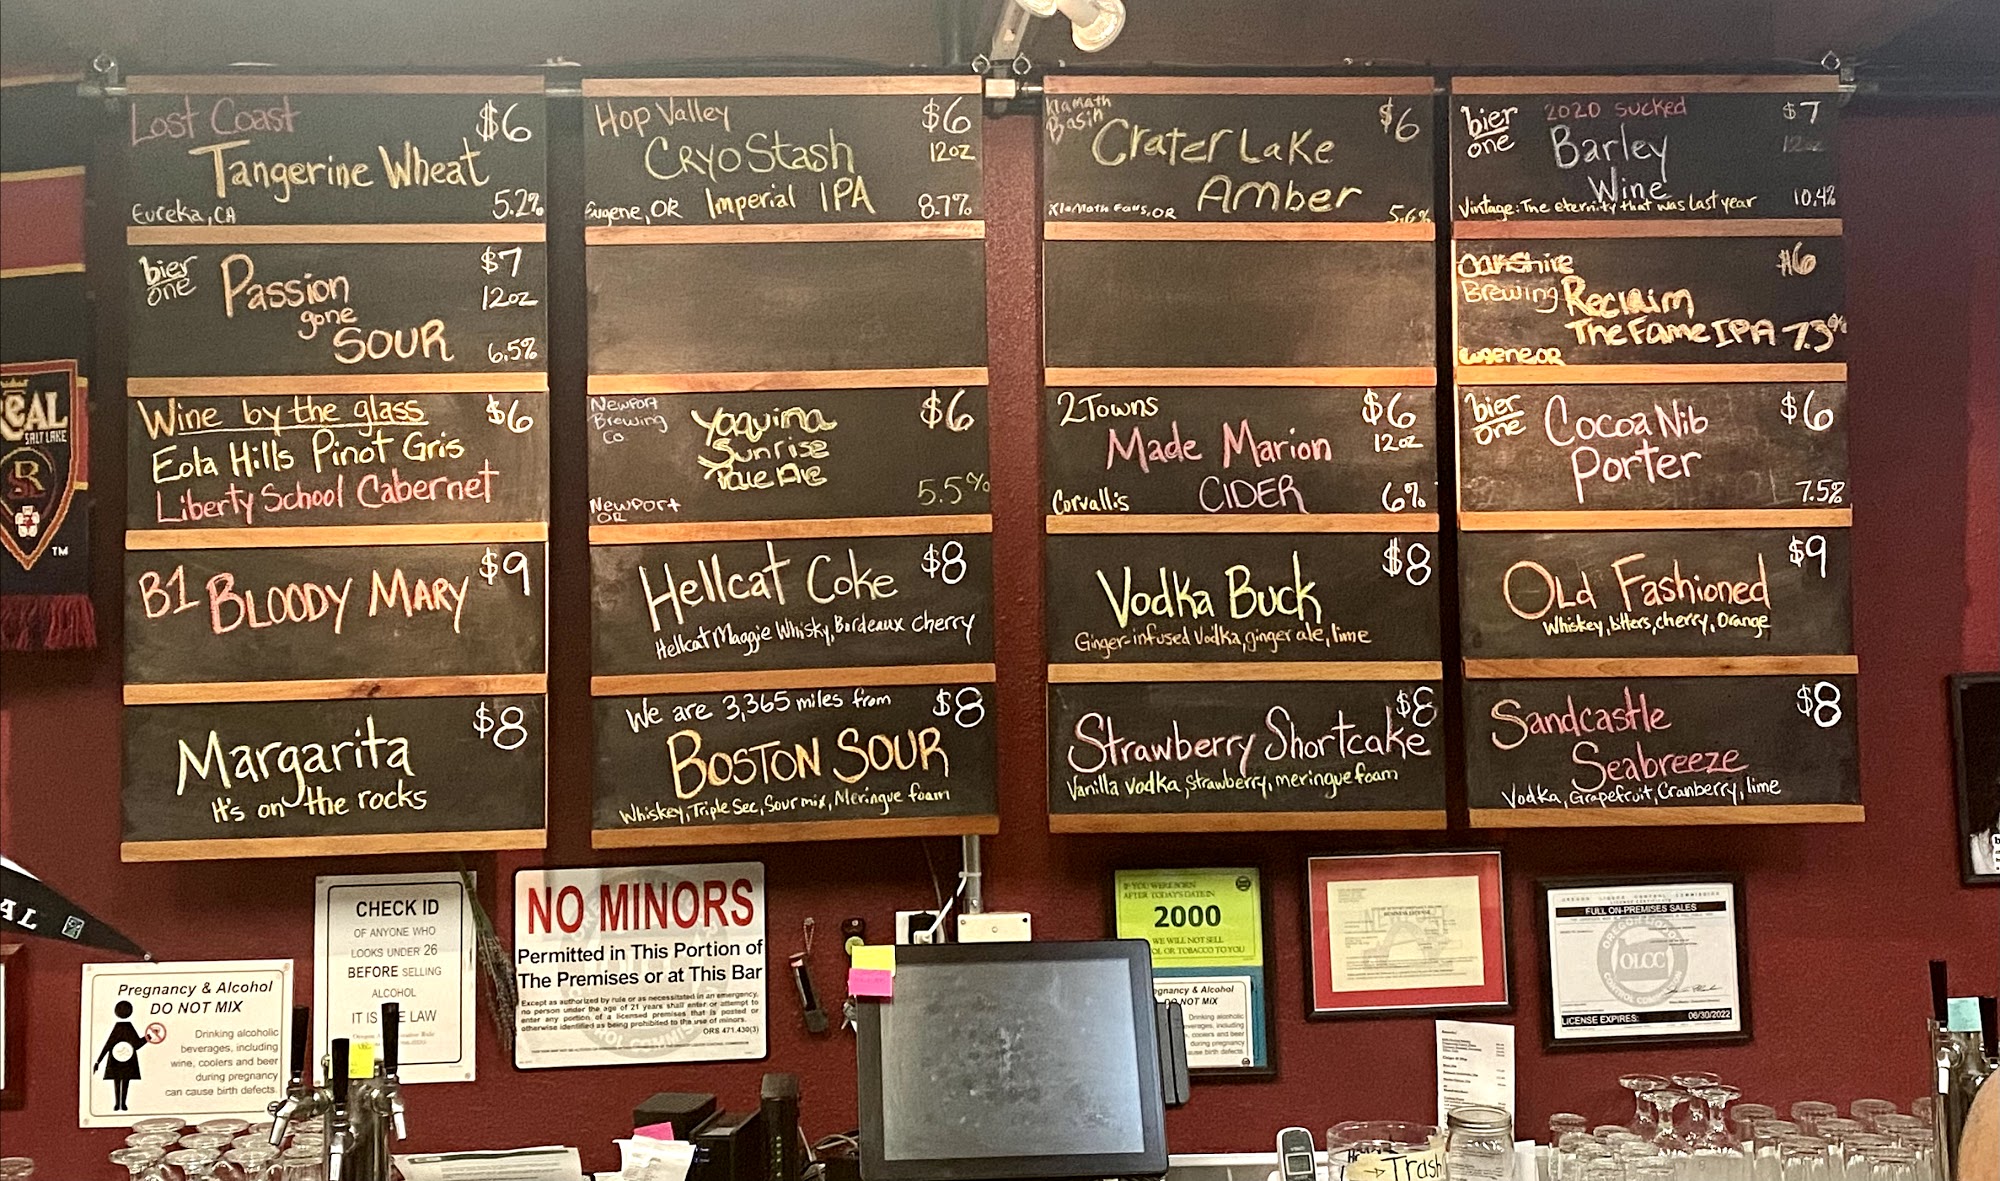 Lost Coast $6
Tangerine Wheat
Eureka, CA 5.2%
bier one
Passion $7
gone 12oz
SOUR 6.5%
Wine by the glass $6
Eola Hills Pinot Gris
Liberty School Cabernet
B1 BLOODY MARY $9
Margarita $8
It's on the rocks
Hop Valley $6
CRYO Stash 12oz
Eugene, OR Imperial IPA 8.7%
Newport
Brewing
Co
Yaquina $6
Sunrise
Pale Ale
Newport
OR
5.5%
Hellcat Coke $8
Hellcat Maggie Whisky, Bordeaux cherry
We are 3,365 miles from $8
BOSTON SOUR
Whiskey, Triple Sec, Sour mix, Meringue foam
Klamath
Basin
$6
Crater Lake
Amber
Klamath Falls, OR 5.6%
2 Towns $6
Made Marion 12oz
Corvallis CIDER 6%
Vodka Buck $8
Ginger-infused Vodka, ginger ale, lime
Strawberry Shortcake $8
Vanilla Vodka, strawberry, meringue foam
bier one
2020 sucked $7
Barley 12oz
Wine
Vintage: The eternity that was last year 10.4%
Oakshire $6
Brewing Reclaim
The Fame IPA 7.3%
bier one
Cocoa Nib $6
Porter
7.5%
Old Fashioned $9
Whiskey, bitters, cherry, Orange
Sandcastle $8
Seabreeze
Vodka, Grapefruit, Cranberry, lime
REAL
SALT LAKE
TM
AL
Pregnancy & Alcohol
DO NOT MIX
Drinking alcoholic
beverages, including
wine, coolers and beer
during pregnancy
can cause birth defects.
CHECK ID
OF ANYONE WHO
LOOKS UNDER 26
BEFORE SELLING
ALCOHOL
IT IS LAW
NO MINORS
Permitted in This Portion of
The Premises or at This Bar
Except as authorized by rule or as necessitated in an emergency,
no person under the age of 21 years shall enter or attempt to
enter any portion of a licensed premises that is posted or
otherwise identified as being prohibited to the use of minors.
ORS 471.430(3)
IF YOU WERE BORN
AFTER TODAY'S DATE IN
2000
WE WILL NOT SELL
OL OR TOBACCO TO YOU
gnancy & Alcohol
DO NOT MIX
Drinking alcoholic
everages, including
coolers and beer
during pregnancy
use birth defects.
BUSINESS LICENSE
OREGON LIQUOR CONTROL COMMISSION
LICENSE CERTIFICATE
FULL ON-PREMISES SALES
OLCC
LICENSE EXPIRES: 06/30/2022
→ Trash